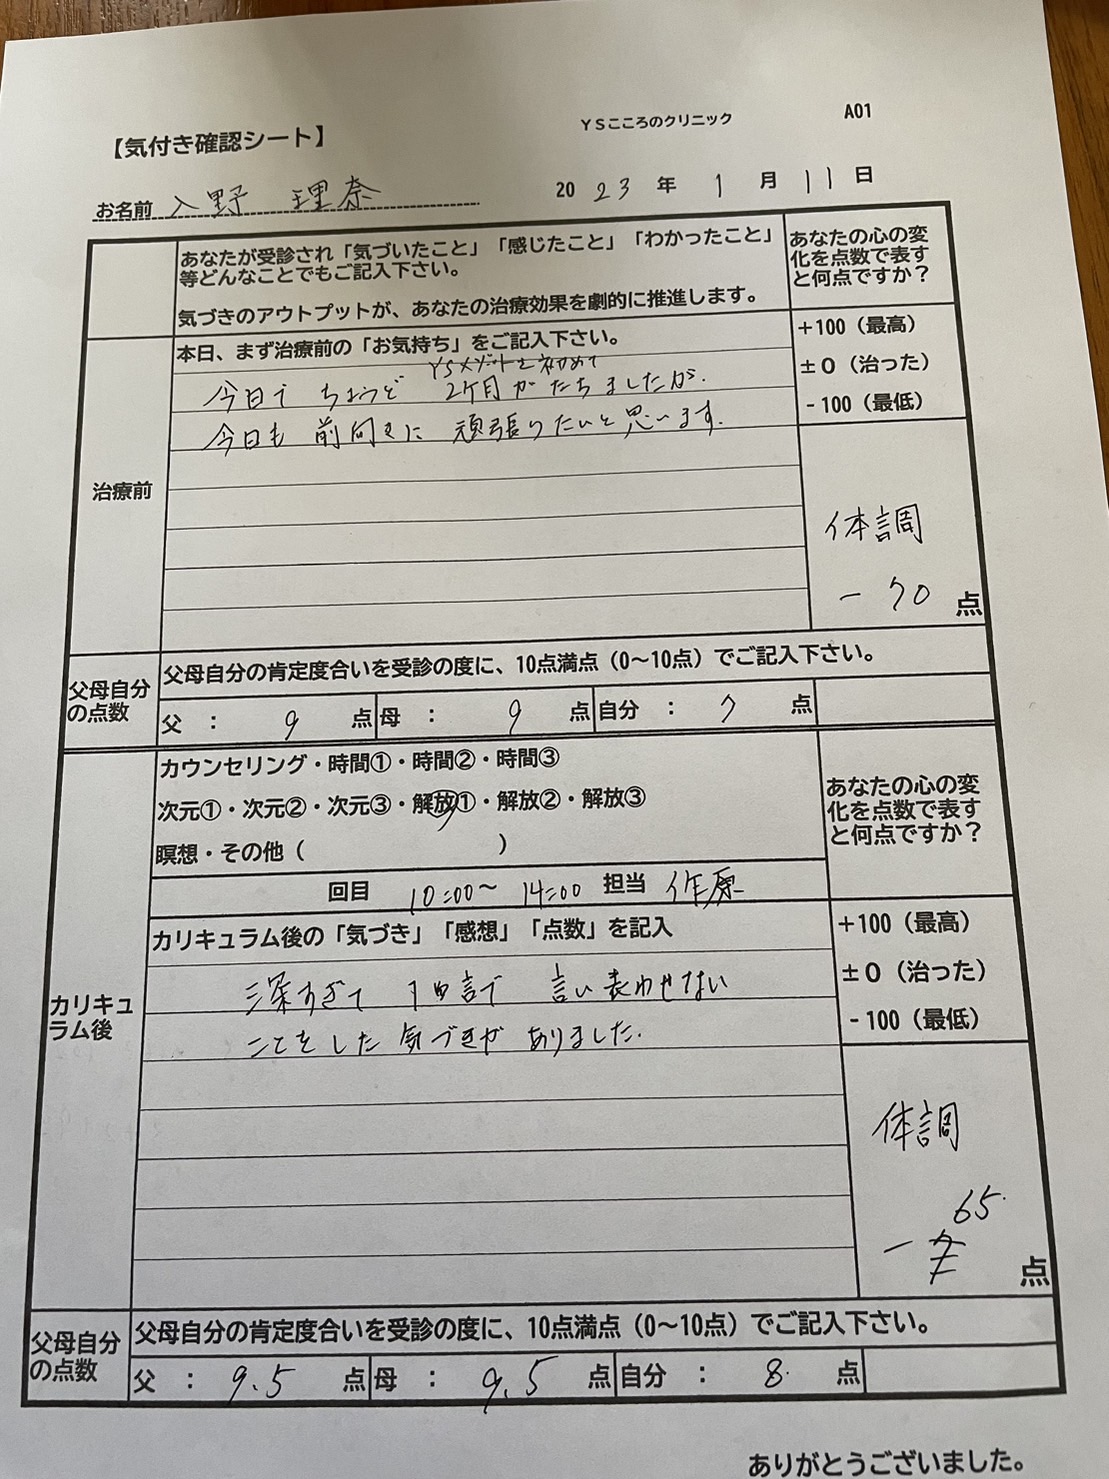 【気付き確認シート】
YSこころのクリニック
A01
お名前 入野 理奈
2023年 1月 11日
あなたが受診され「気づいたこと」「感じたこと」「わかったこと」
等どんなことでもご記入下さい。
気づきのアウトプットが、あなたの治療効果を劇的に推進します。
あなたの心の変
化を点数で表す
と何点ですか？
治療前
本日、まず治療前の「お気持ち」をご記入下さい。
YSメゾットを初めて
今日で ちょうど 2ケ月がたちましたが、
今日も 前向きに 頑張りたいと思います。
+100（最高）
±0（治った）
-100（最低）
体調
-70 点
父母自分
の点数
父母自分の肯定度合いを受診の度に、10点満点（0〜10点）でご記入下さい。
父 ： 9 点 母 ： 9 点 自分 ： 7 点
カウンセリング・時間①・時間②・時間③
次元①・次元②・次元③・解放①・解放②・解放③
瞑想・その他（ ）
回目 10:00〜 14:00 担当 作原
あなたの心の変
化を点数で表す
と何点ですか？
カリキュ
ラム後
カリキュラム後の「気づき」「感想」「点数」を記入
深すぎて 1口話で 言い表わせない
ことをした 気づきが ありました。
+100（最高）
±0（治った）
-100（最低）
体調
-65 点
父母自分
の点数
父母自分の肯定度合いを受診の度に、10点満点（0〜10点）でご記入下さい。
父 ： 9.5 点 母 ： 9.5 点 自分 ： 8. 点
ありがとうございました。